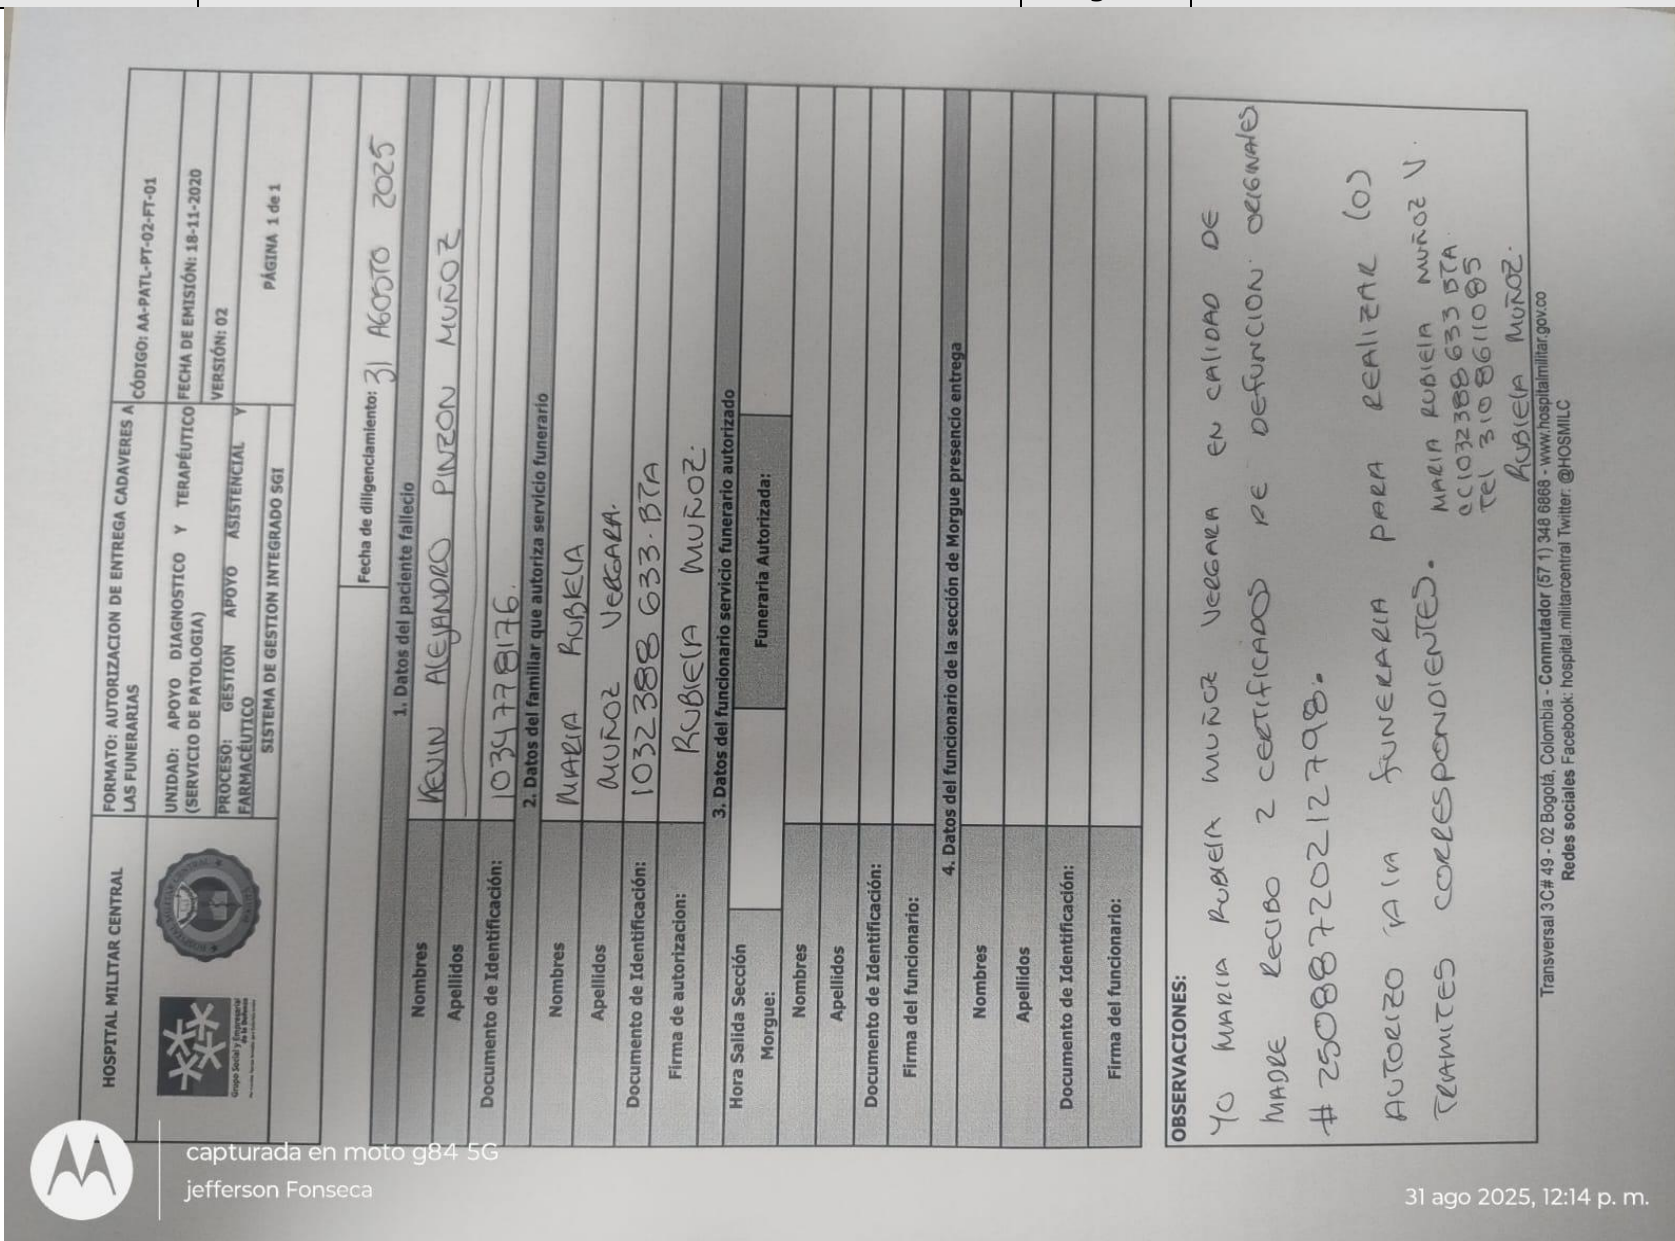 HOSPITAL MILITAR CENTRAL
FORMATO: AUTORIZACION DE ENTREGA CADAVERES A
LAS FUNERARIAS
CÓDIGO: AA-PATL-PT-02-FT-01
UNIDAD: APOYO DIAGNOSTICO Y TERAPÉUTICO
(SERVICIO DE PATOLOGIA)
FECHA DE EMISIÓN: 18-11-2020
PROCESO: GESTIÓN APOYO ASISTENCIAL Y
FARMACÉUTICO
VERSIÓN: 02
SISTEMA DE GESTION INTEGRADO SGI
PÁGINA 1 de 1
Grupo Social y Empresarial
de la Defensa
Fecha de diligenciamiento: 31 AGOSTO 2025
1. Datos del paciente fallecio
Nombres KEVIN ALEJANDRO PINZON MUÑOZ
Apellidos
Documento de Identificación: 1034778176.
2. Datos del familiar que autoriza servicio funerario
Nombres MARIA RUBIELA
Apellidos MUÑOZ VERGARA.
Documento de Identificación: 1032388 633. BTA
Firma de autorizacion: RUBIELA MUÑOZ.
3. Datos del funcionario servicio funerario autorizado
Hora Salida Sección
Morgue:
Funeraria Autorizada:
Nombres
Apellidos
Documento de Identificación:
Firma del funcionario:
4. Datos del funcionario de la sección de Morgue presencio entrega
Nombres
Apellidos
Documento de Identificación:
Firma del funcionario:
OBSERVACIONES:
YO MARIA RUBIELA MUÑOZ VERGARA EN CALIDAD DE
MADRE RECIBO 2 CERTIFICADOS DE DEFUNCION ORIGINALES
# 25088720212798.
AUTORIZO A LA FUNERARIA PARA REALIZAR (0)
TRAMITES CORRESPONDIENTES.
MARIA RUBIELA MUÑOZ V.
CC1032388633 BTA.
Tel 3108611085
RUBIELA MUÑOZ.
Transversal 3C# 49 - 02 Bogotá, Colombia - Conmutador (57 1) 348 6868 - www.hospitalmilitar.gov.co
Redes sociales Facebook: hospital.militarcentral Twitter: @HOSMILC
capturada en moto g84 5G
jefferson Fonseca
31 ago 2025, 12:14 p. m.